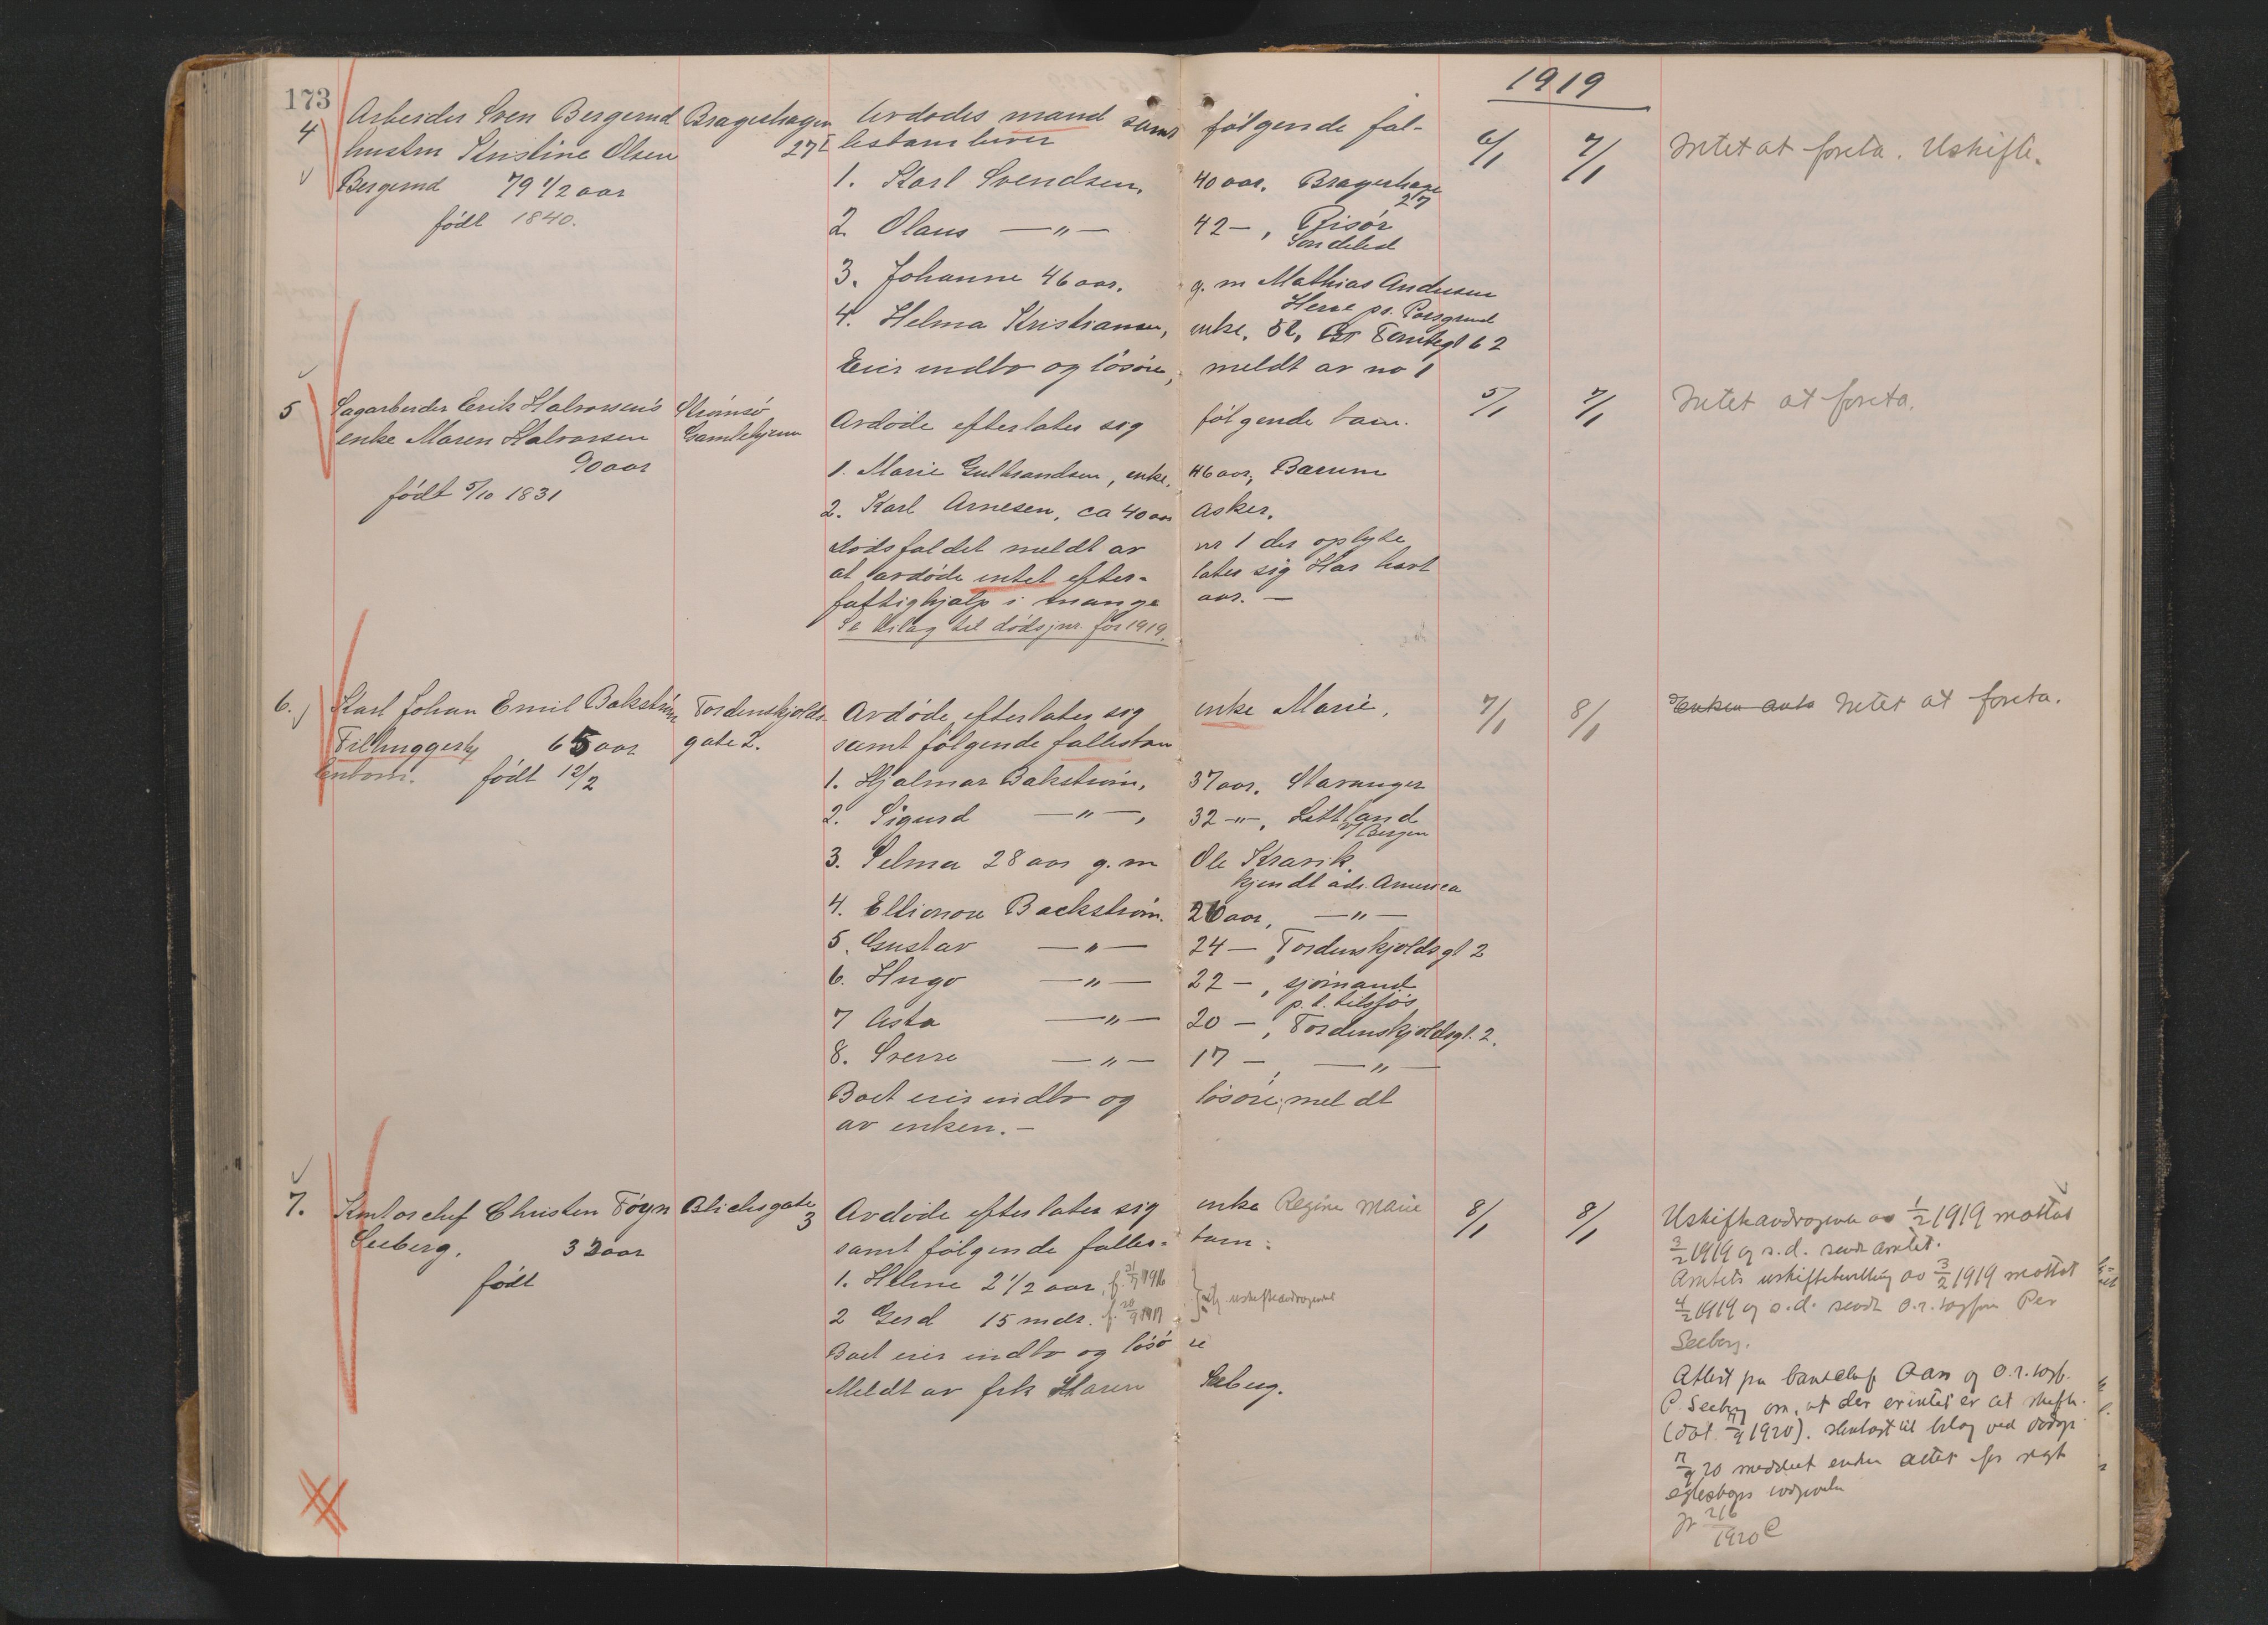 173
1919
4
Arbeider Sven Bergerud
hustru Kristine Olsen
Bergerud 79 1/2 aar
født 1840.
Bragerhagen
27 I
Avdødes mand samt følgende fæl-
lesbarn lever
1. Karl Svendsen, 40 aar. Bragerhage
27
2. Olaus —"— 42 —, Risør
Søndeled
3. Johanne 46 aar. g. m Mathias Andersen
Herre pr. Porsgrund
4. Helma Kristiansen, enke, 52, Tomtegt 62
Eier indbo og løsøre, meldt av no 1
6/1
7/1
Intet at foreta. Uskifte.
5
Sagarbeider Erik Halvorsen's
enke Maren Halvorsen
90 aar
født 5/10 1831
Strømsø
Gamlehjem
Avdøde efterlater sig følgende barn.
1. Marie Gulbrandsen, enke, 46 aar, Bærum
2. Karl Arnesen, ca 40 aar Asker.
Dødsfaldet meldt av nr 1 der oplyste
at avdøde intet efter- later sig Har havt
fattighjælp i mange aar. —
Se bilag til dødsjnr. for 1919.
5/1
7/1
Intet at foreta.
6.
Karl Johan Emil Bakstrøm
Filhugger
65 aar
født 12/2
Tordenskjolds-
gate 2.
Avdøde efterlater sig enke Marie,
samt følgende fællesbarn
1. Hjalmar Bakstrøm, 37 aar. Stavanger
2. Sigurd —"—, 32 —"—,
v/ Bergen
3. Selma 28 aar g. m Ole Kravik
kjendt adr. America
4. Ellionore Backstrøm. 26 aar, —"—
5. Gustav —"— 24 — Tordenskjoldsgt 2
6. Hugo —"— 22 —, sjømand
p. t. tilsjøs
7 Asta —"— 20 —, Tordenskjoldsgt. 2.
8. Sverre —"— 17 —, —"—
Boet eier indbo og løsøre, meldt
av enken. —
7/1
8/1
Enken anb Intet at foreta.
7.
Kontorchef Christen Føyn
Seeberg. 32 aar
født
Blichsgate
3
Avdøde efterlater sig enke Regine Marie
samt følgende fælles- barn:
1. Helene 2 1/2 aar, f. 21/7 1916
2 Gerd 15 mdr. f. 20/9 1917
iflg. uskifteandragende
Boet eier indbo og løsø re
Meldt av frk Karen Seeberg.
8/1
8/1
Uskifteandragende av 1/2 1919 mottat
3/2 1919 og s. d. sendt Amtet.
Amtets uskiftebevilling av 3/2 1919 mottat
4/2 1919 og s. d. sendt O. r. sagfører Per
Seeberg.
Attest fra banksjef Aas og O. r. sagf.
P. Seeberg om, at der er intet er at skifte.
(dat. 1920). til bilag ved
20 meddelt enken attest for
Jr 216
1920 C